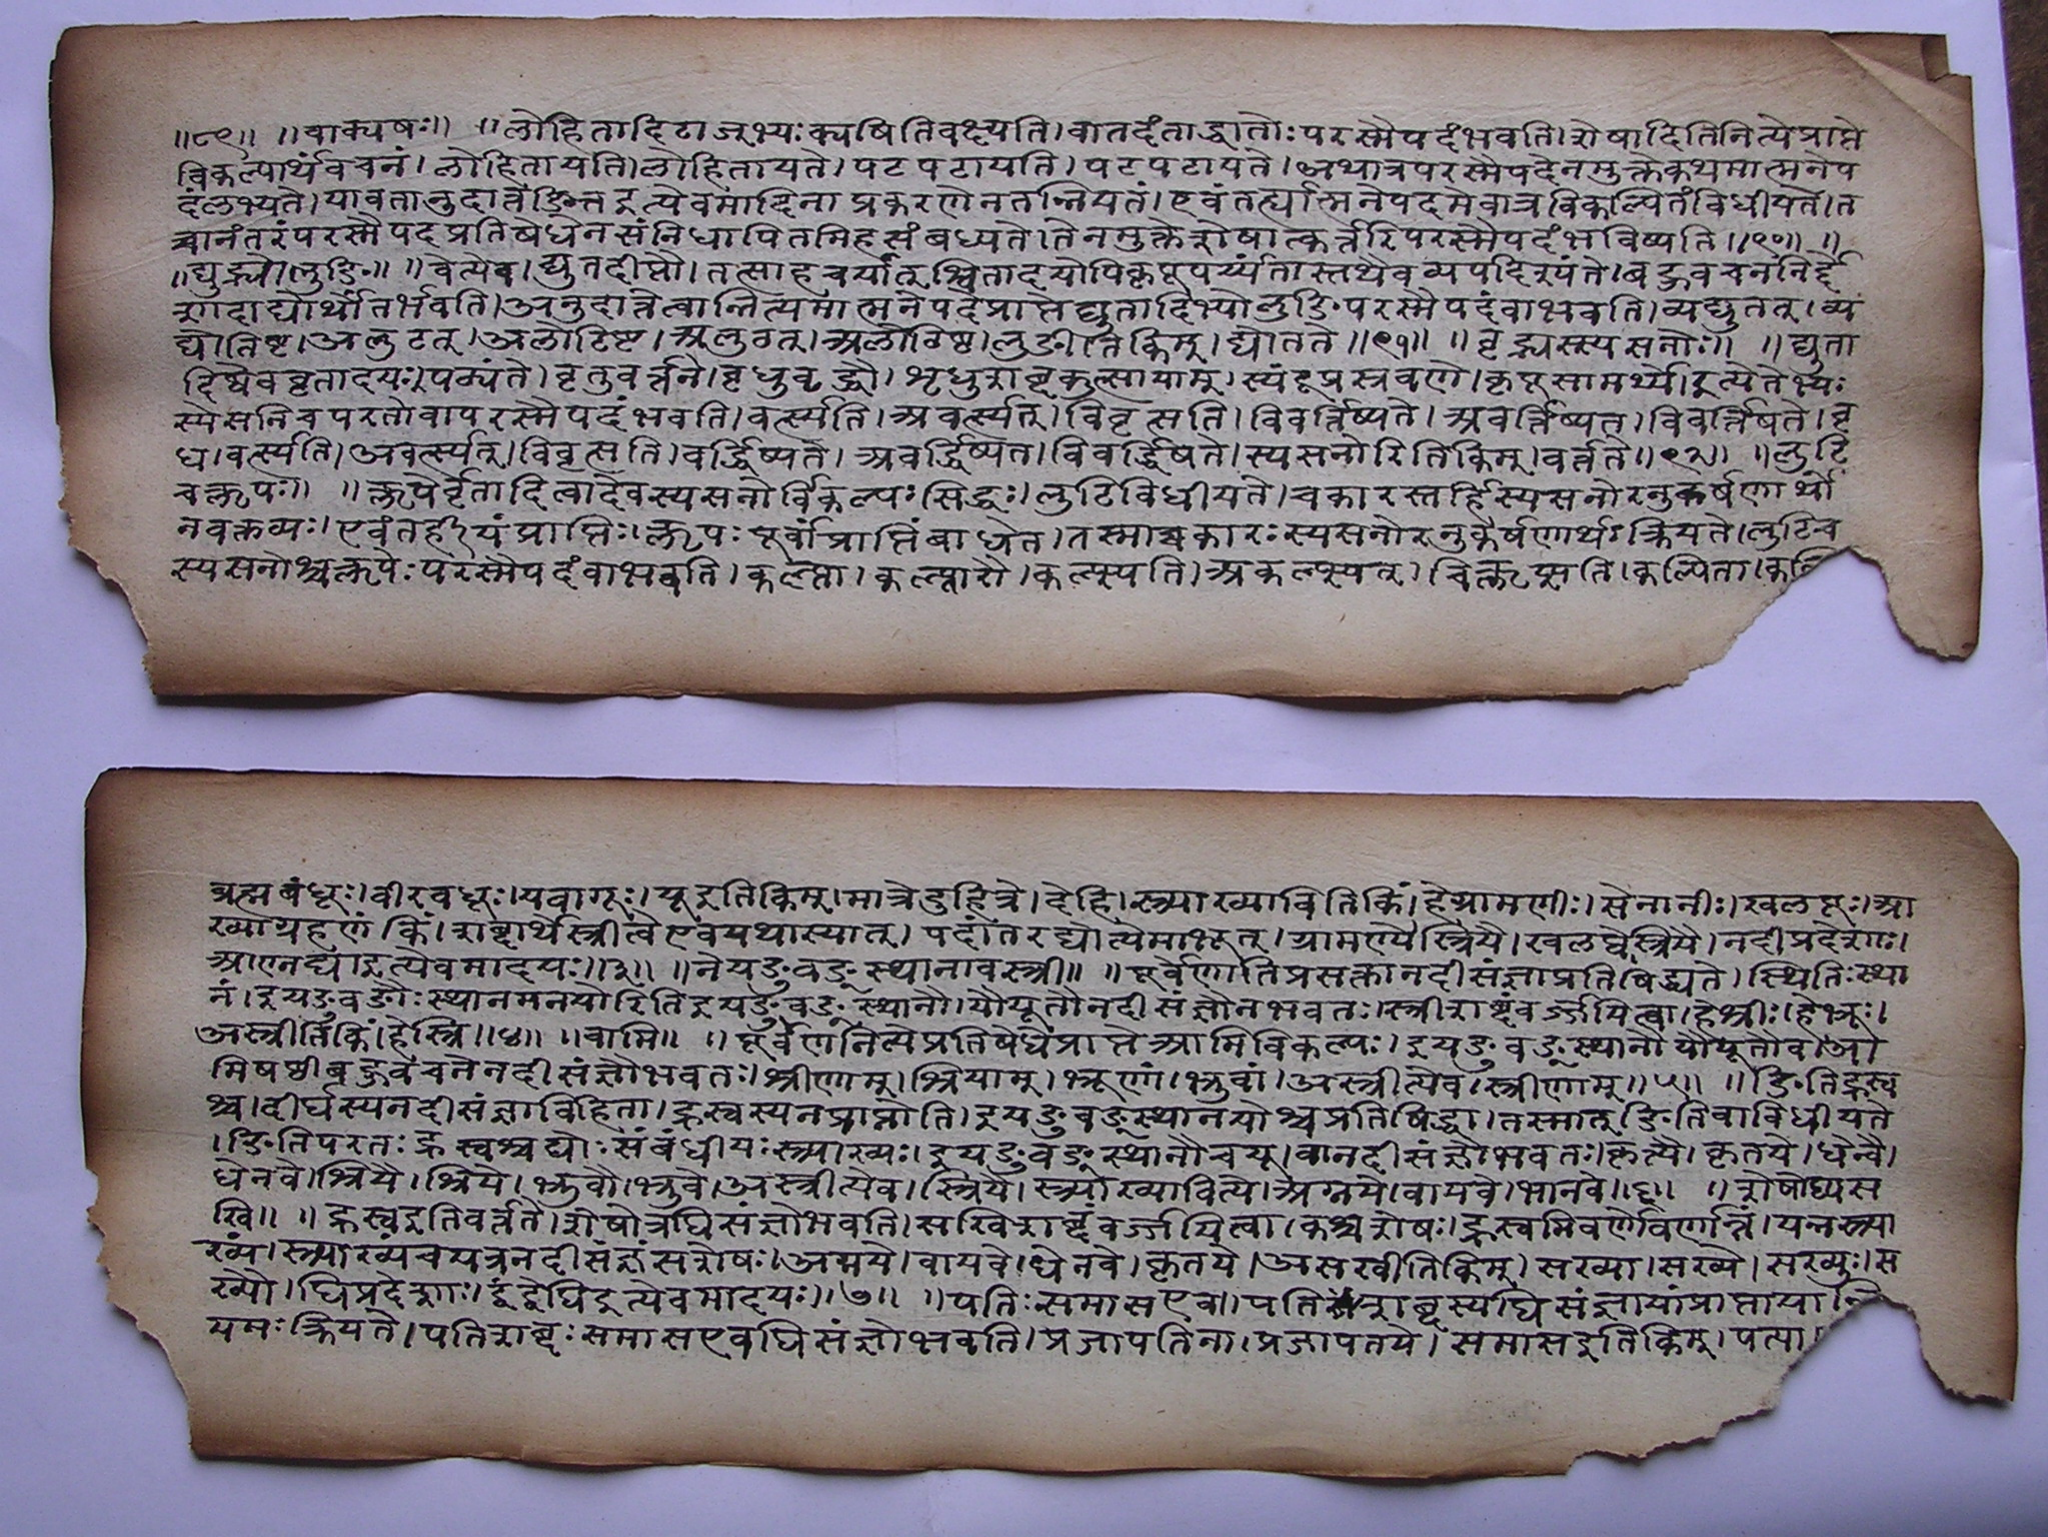 ॥८९॥ ॥वाक्यषः॥ ॥लोहितादिडाज्भ्यःक्यषितिवक्ष्यति।वातदंताद्धातोःपरस्मैपदंभवति।शेषादितिनित्येप्राप्ते
विकल्पार्थंवचनं।लोहितायति।लोहितायते।पटपटायति।पटपटायते।अथात्रपरस्मैपदेनमुक्तेकथमात्मनेप
दंलभ्यते।यावतानुदात्तङित्तइत्येवमादिनाप्रकरणेनतन्नियतं।एवंतर्ह्यात्मनेपदमेवात्रविकल्पितंविधीयते।त
च्चानंतरंपरस्मैपदप्रतिषेधेनसंनिधापितमिहसंबध्यते।तेनमुक्तेशेषात्कर्त्तरिपरस्मैपदंभविष्यति॥९०॥ ॥
॥द्युद्भ्योलुङि॥ ॥वेत्येव।द्युतदीप्तौ।तत्साहचर्यात्श्वितादयोपिकृपूपर्य्यंतास्तथैवव्यपदिश्यंते।बहुवचननिर्द्दे
शादाद्यार्थोतर्भवति।अनुदात्तेत्वान्नित्यमात्मनेपदेप्राप्तेद्युतादिभ्योलुङिपरस्मैपदंवाभवति।व्यद्युतत्।व्य
द्योतिष्ट।अलुटत्।अलोटिष्ट।अलुठत्।अलोठिष्ठ।लुङीतिकिम्।द्योतते॥९१॥ ॥वृद्भ्यस्स्यसनोः॥ ॥द्युता
दिष्वेववृतादयःपठ्यंते।वृतुवर्त्तने।वृधुवृद्धौ।शृधुशब्दकुत्सायाम्।स्यंदूप्रस्त्रवणे।कृपूसामर्थ्ये।इत्येतेभ्यः
स्येसनिचपरतोवापरस्मैपदंभवति।वर्त्स्यति।अवर्त्स्यत्।विवृत्सति।विवर्त्तिष्यते।अवर्त्तिष्यत।विवर्त्तिषते।वृ
ध।वर्त्स्यति।अवर्त्स्यत्।विवृत्सति।वर्द्धिष्यते।अवर्द्धिष्यत।विवर्द्धिषते।स्यसनोरितिकिम्।वर्त्तते॥९२॥ ॥लुटि
चक्लृपः॥ ॥क्लृपेर्वृतादित्वादेवस्यसनोर्विकल्पःसिद्धः।लुटिविधीयते।चकारस्तर्हिस्यसनोरनुकर्षणार्थो
नवक्तव्यः।एवंतर्हीयंप्राप्तिः।क्लृपःपूर्वांप्राप्तिंबाधेत।तस्माच्चकारःस्यसनोरनुकर्षणार्थःक्रियते।लुटिच
स्यसनोश्चक्लृपेःपरस्मैपदंवाभवति।कल्प्ता।कल्प्तारौ।कल्प्स्यति।अकल्प्स्यत्।चिक्लृप्सति।कल्पिता।कल्पि
ब्रह्मबंधूः।वीरबधूः।यवागूः।यूइतिकिम्।मात्रेदुहित्रे।देहि।स्त्र्याख्यावितिकिं।हेग्रामणीः।सेनानीः।खलपूः।आ
ख्याग्रहणंकिं।शब्दार्थेस्त्रीत्वेएवंयथास्यात्।पदांतरद्योत्येमाभूत्।ग्रामण्यैस्त्रियै।खलप्वेस्त्रियै।नदीप्रदेशाः।
आण्नद्याइत्येवमादयः॥३॥ ॥नेयङुवङ्स्थानावस्त्री॥ ॥पूर्वेणातिप्रसक्तानदीसंज्ञाप्रतिषिद्ध्यते।स्थितिःस्था
नं।इयङुवङोःस्थानमनयोरितिइयङुवङ्स्थानौ।यौयूतौनदीसंज्ञौनभवतः।स्त्रीशब्दंवर्ज्जयित्वा।हेश्रीः।हेभ्रूः।
अस्त्रीतिकिं।हेस्त्रि॥४॥ ॥वामि॥ ॥पूर्वेणनित्येप्रतिषेधेप्राप्तेआमिविकल्पः।इयङुवङ्स्थानौयौयूतौवाआ
मिषष्ठीबहुवचनेनदीसंज्ञौभवतः।श्रीणाम्।श्रियाम्।भ्रूणां।भ्रुवां।अस्त्रीत्येव।स्त्रीणाम्॥५॥ ॥ङितिह्रस्व
श्च।दीर्घस्यनदीसंज्ञाविहिता।ह्रस्वस्यनप्राप्नोति।इयङुवङ्स्थानयोश्चप्रतिषिद्धा।तस्मात्ङितिवाविधीयते
।ङितिपरतःह्रस्वश्चय्वोःसंबंधीयःस्त्र्याख्यः।इयङुवङ्स्थानौचयू।वानदीसंज्ञौभवतः।कृत्यै।कृतये।धेन्वै।
धेनवे।श्रियै।श्रिये।भ्रुवौ।भ्रुवे।अस्त्रीत्येव।स्त्रियै।स्त्र्याख्यावित्ये।अग्नये।वायवे।भानवे॥६॥ ॥शेषोघ्यस
खि॥ ॥ह्रस्वइतिवर्त्तते।शेषोत्रघिसंज्ञोभवति।सखिशब्दंवर्ज्जयित्वा।कश्चशेषः।ह्रस्वमिवर्णोवर्णान्तं।यन्नस्त्र्या
ख्यं।स्त्र्याख्यंचयन्ननदीसंज्ञंसशेषः।अग्नये।वायवे।धेनवे।कृतये।असखीतिकिम्।सख्या।सख्ये।सख्युः।स
ख्यौ।घिप्रदेशाः।द्वंद्वेघिइत्येवमादयः॥७॥ ॥पतिःसमासएव॥पतिशब्दस्यघिसंज्ञायांप्राप्तायांनि
यमःक्रियते।पतिशब्दःसमासएवघिसंज्ञोभवति।प्रजापतिना।प्रजापतये।समासइतिकिम्।पत्या।